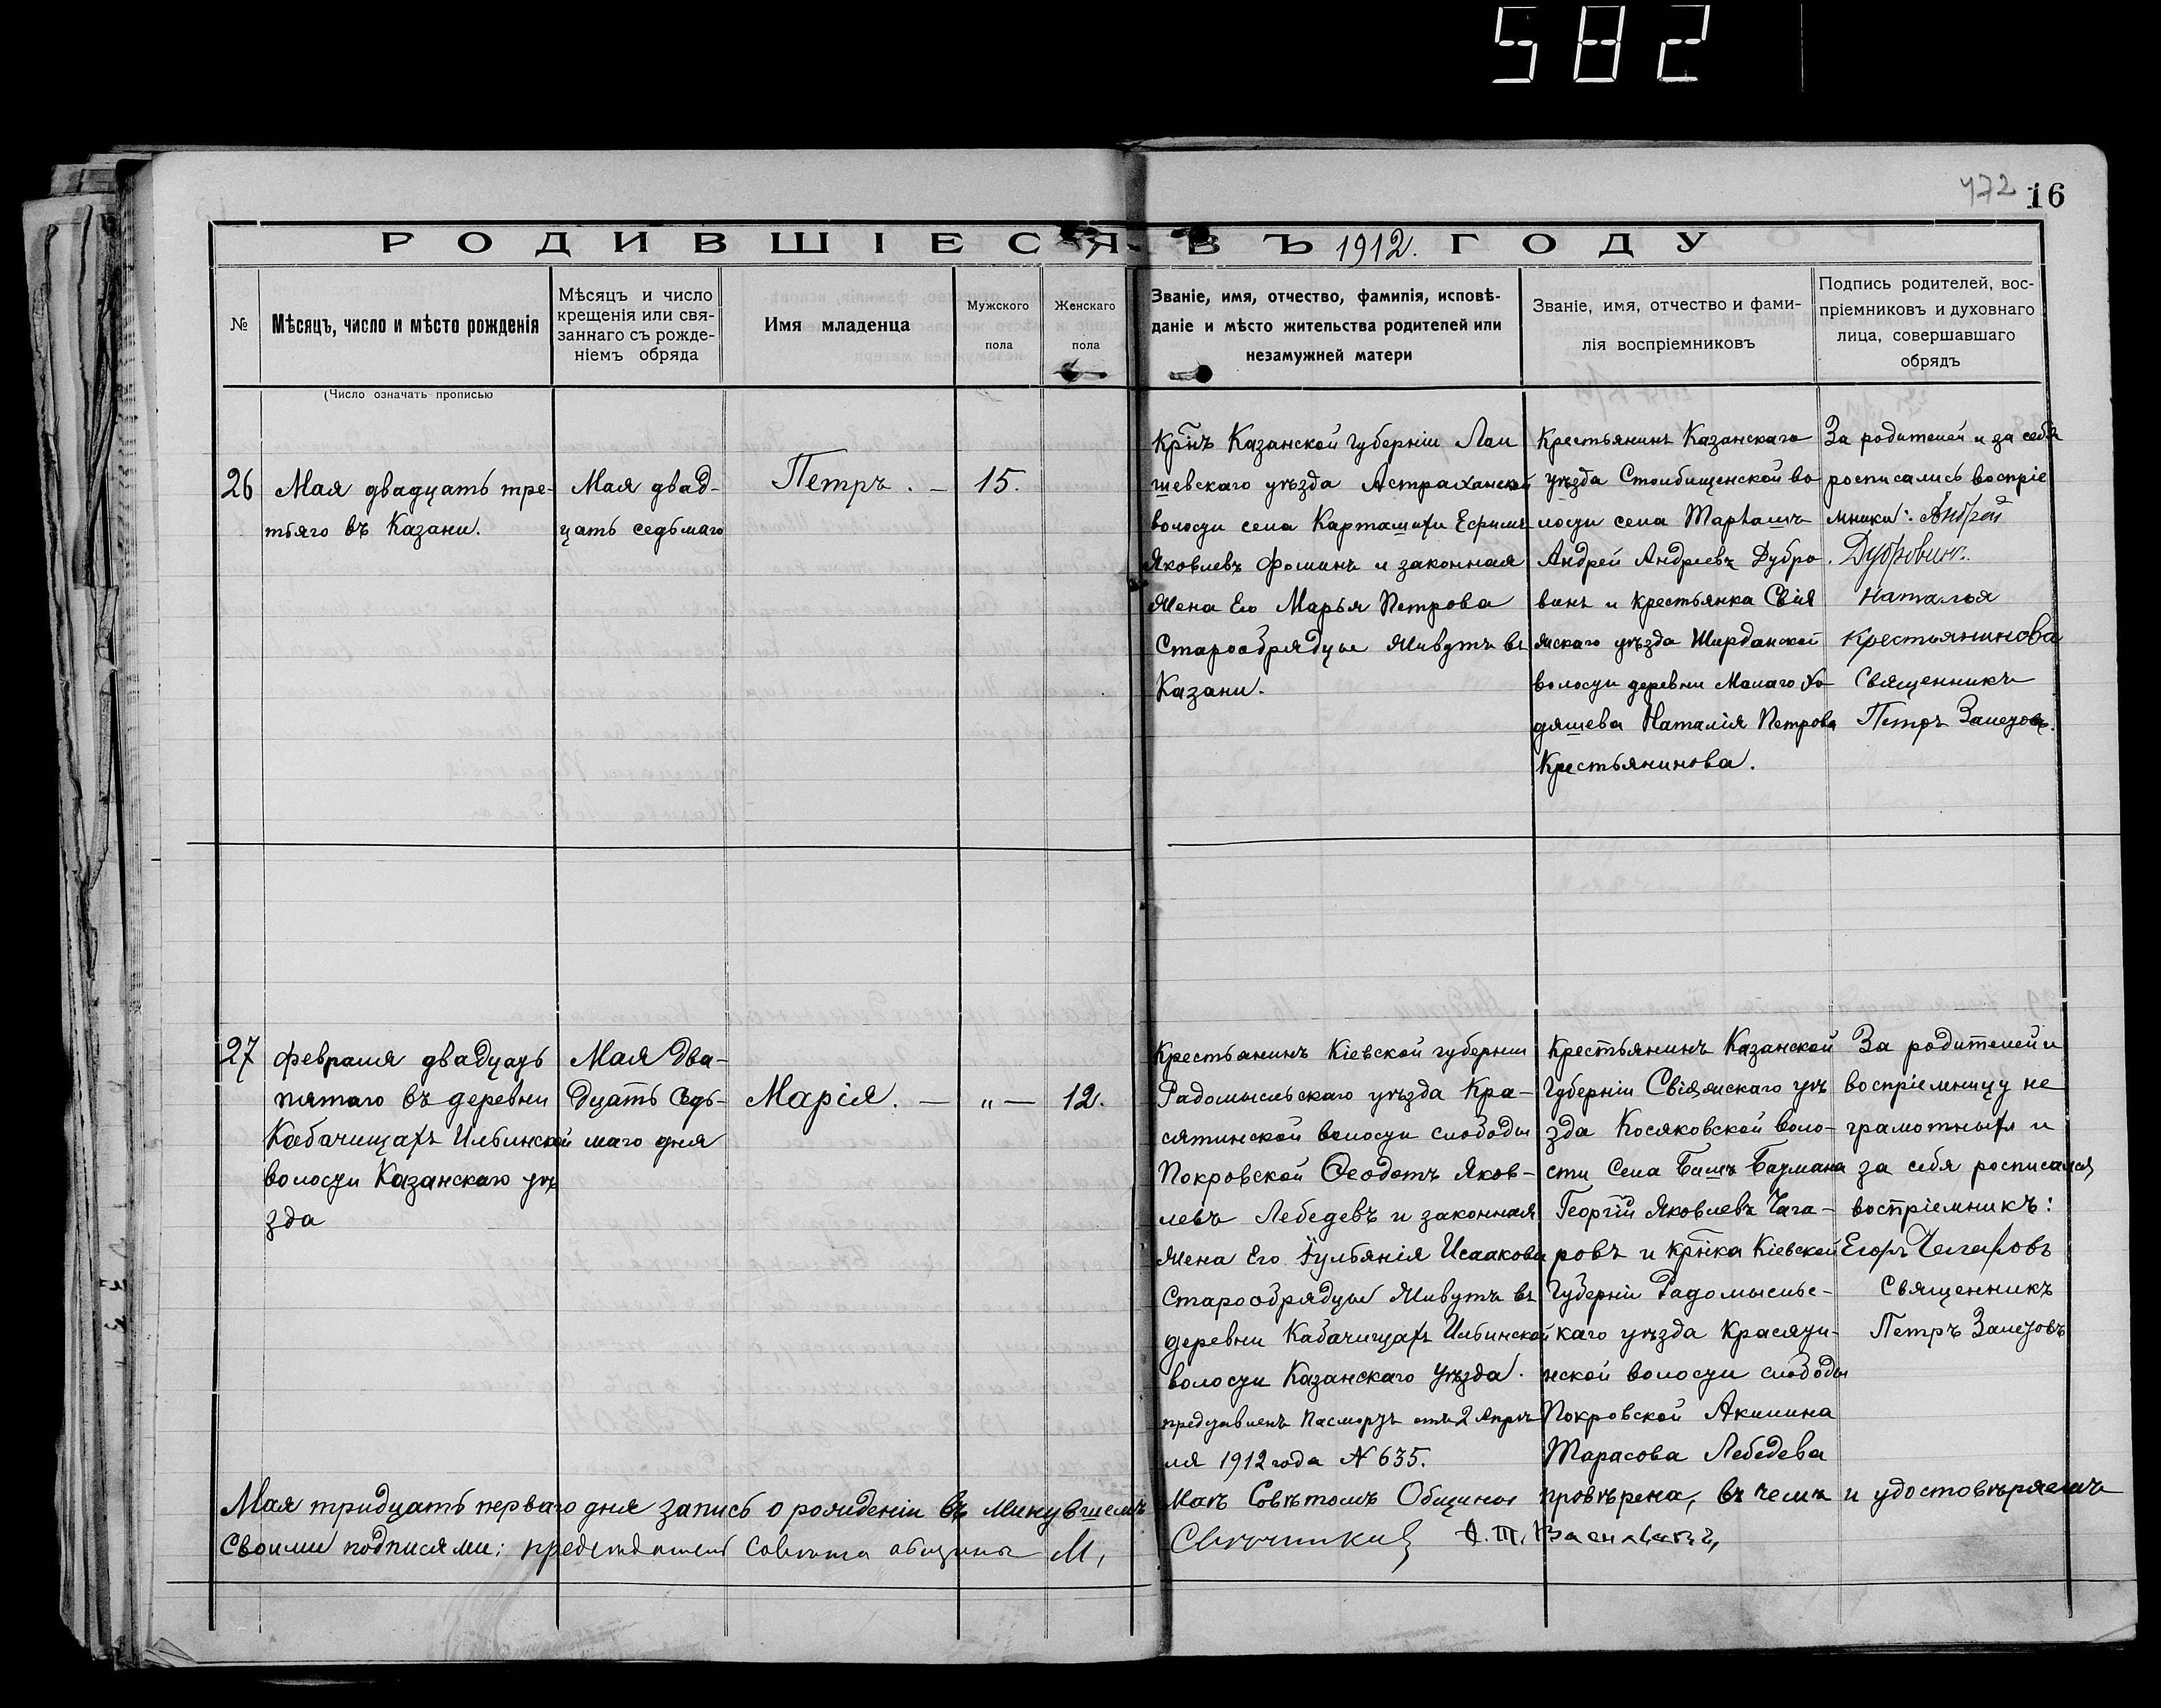 582
472 16
РОДИВШІЕСЯ ВЪ 1912. ГОДУ
№
Мѣсяцъ, число и мѣсто рожденія
Мѣсяцъ и число
крещенія или свя-
заннаго съ рожде-
ніемъ обряда
Имя младенца
Мужского
пола
Женскаго
пола
Званіе, имя, отчество, фамилія, исповѣ-
даніе и мѣсто жительства родителей или
незамужней матери
Званіе, имя, отчество и фами-
лія воспріемниковъ
Подпись родителей, вос-
пріемниковъ и духовнаго
лица, совершавшаго
обрядъ
(Число означать прописью
26
Мая двадцать тре-
тьяго въ Казани.
Мая двад-
цать седьмаго
Петръ. —
15.
Крнъ Казанской губерніи Лаи
шевскаго уѣзда Астраханской
волости села Карташихи Ефимъ
Яковлевъ Фоминъ и законная
жена Его Марья Петрова
Старообрядцы Живутъ въ
Казани.
Крестьянинъ Казанскаго
уѣзда Столбищенской во
лости села Тарлашъ
Андрей Андреевъ Дубро
винъ и крестьянка Свія
жскаго уѣзда Ширданской
волости деревни Малаго Хо
дяшева Наталія Петрова
Крестьянинова.
За родителей и за себя
росписались воспріе
мники: Андрей
Дубровинъ.
Наталья
Крестьянинова
Священникъ
Петръ Залетовъ.
27
Февраля двадцать
пятаго въ деревни
Кабачищахъ Ильинской
волости Казанскаго уѣ
зда
Мая два-
дцать седь-
маго дня
Марія. —
„ —
12.
Крестьянинъ Кіевской губерніи
Радомысльскаго уѣзда Кра-
сятинской волости слободы
Покровской Ѳеодотъ Яков-
левъ Лебедевъ и законная
жена Его Іульянія Исаакова
Старообрядцы Живутъ въ
деревни Кабачищахъ Ильинской
волости Казанскаго Уѣзда.
представленъ паспортъ отъ 2 Апрѣ
ля 1912 года № 635.
Крестьянинъ Казанской
Губерніи Свіяжскаго уѣ
зда Косяковской воло-
сти Села Бишъ Баумана
Георгій Яковлевъ Чага-
ровъ и Крнка Кіевской
Губерніи Радомысльс-
каго уѣзда Красяти-
нской волости слободы
Покровской Акилина
Тарасова Лебедева
За родителей и
воспріемницу не
грамотныхъ и
за себя росписался
воспріемникъ:
Егоръ Чагаровъ
Священникъ
Петръ Залетовъ
Мая тридцать перваго дня запись о рожденіи въ минувшемъ Маѣ Совѣтомъ Общины провѣрена, въ чемъ и удостовѣряемъ
Своими подписями: председатель совета общины М,